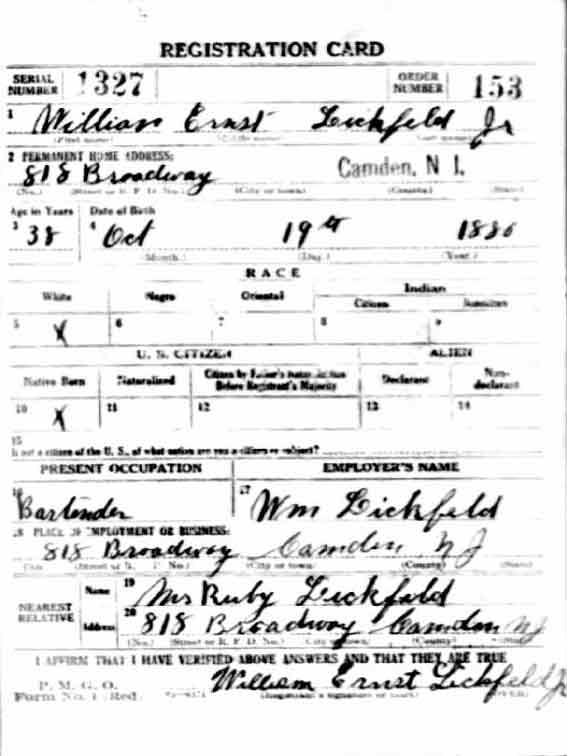 REGISTRATION CARD
SERIAL NUMBER 1327 ORDER NUMBER 153
1 William Ernst Lickfeld Jr
(First name) (Middle name) (Last name)
2 PERMANENT HOME ADDRESS:
818 Broadway Camden, N. J.
(No.) (Street or R. F. D. No.) (City or town) (County) (State)
Age in Years Date of Birth
3 38 4 Oct 19th 1880
(Month.) (Day.) (Year.)
RACE
White Negro Oriental Indian
Citizen Noncitizen
5 X 6 7 8 9
U. S. CITIZEN ALIEN
Native Born Naturalized Citizen by Father's Naturalization Before Registrant's Majority Declarant Non-declarant
10 X 11 12 13 14
15
If not a citizen of the U. S., of what nation are you a citizen or subject?
PRESENT OCCUPATION EMPLOYER'S NAME
16 Bartender 17 Wm Lickfeld
18 PLACE OF EMPLOYMENT OR BUSINESS:
818 Broadway Camden NJ
(No.) (Street or R. F. D. No.) (City or town) (County) (State)
NEAREST RELATIVE
Name 19 Mrs Ruby Lickfeld
Address 20 818 Broadway Camden NJ
(No.) (Street or R. F. D. No.) (City or town) (County) (State)
I AFFIRM THAT I HAVE VERIFIED ABOVE ANSWERS AND THAT THEY ARE TRUE
P. M. G. O.
Form No. 1 (Red) William Ernst Lickfeld Jr
(Registrant's signature or mark)